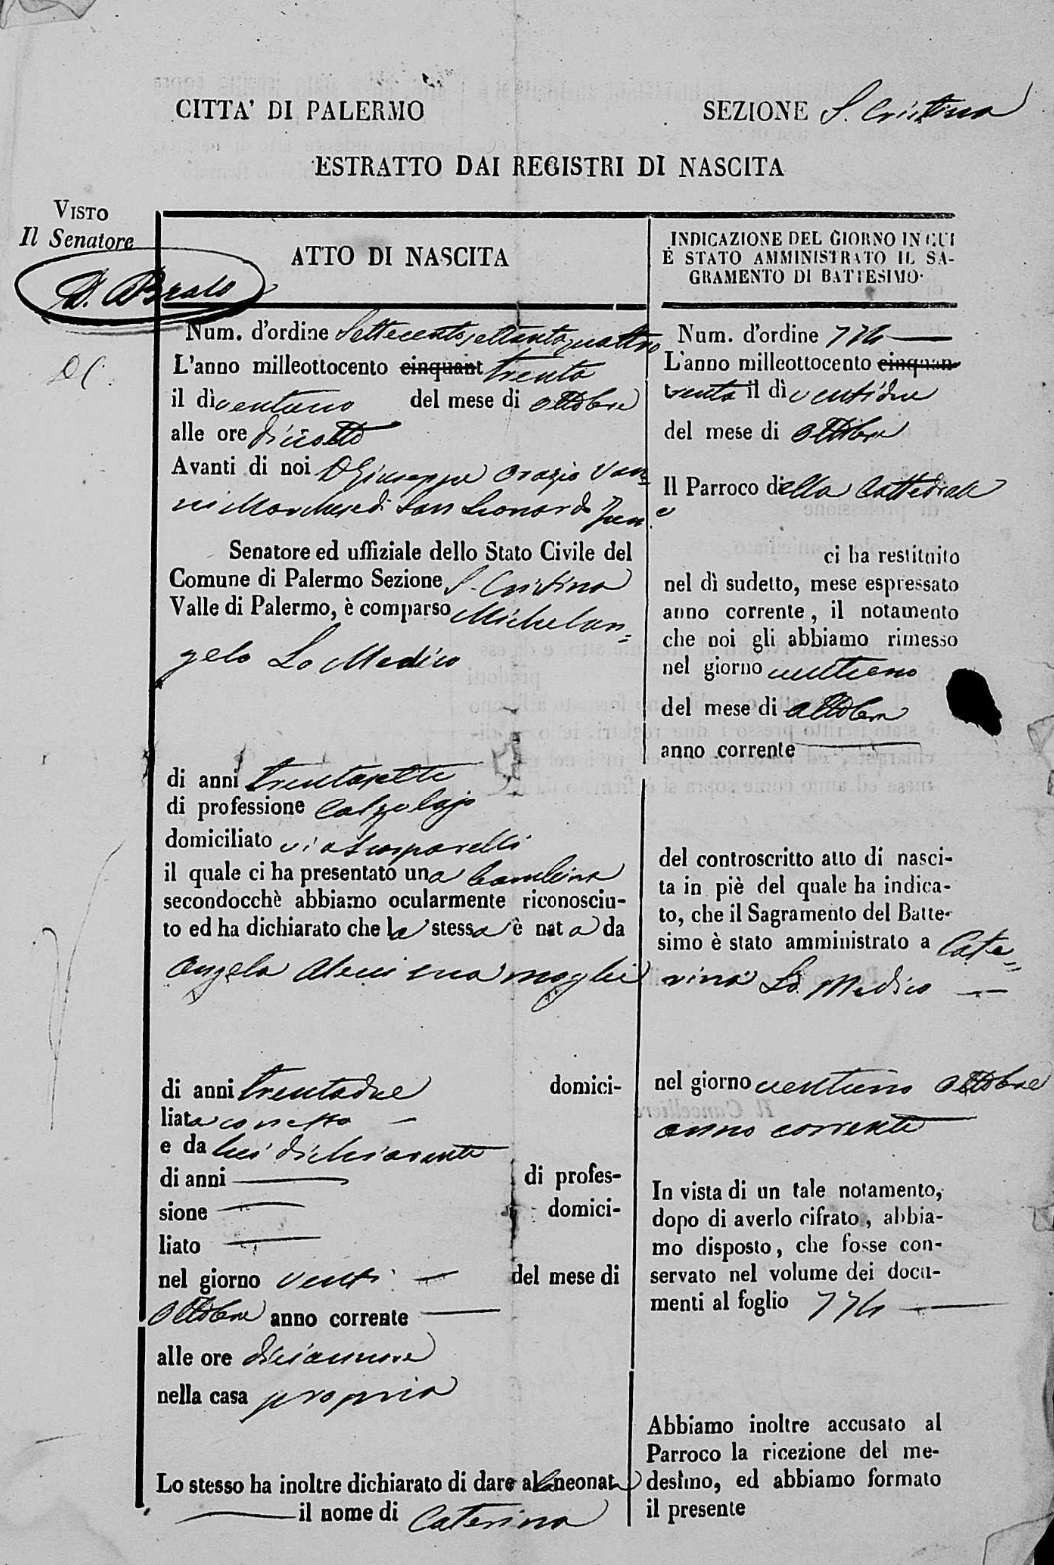 CITTA' DI PALERMO
SEZIONE S. Cristina
ESTRATTO DAI REGISTRI DI NASCITA
VISTO
Il Senatore
ATTO DI NASCITA
Num. d'ordine Settecentosettantaquattro
L'anno milleottocento cinquant trenta
il dì ventuno del mese di Ottobre
alle ore diciotto
Avanti di noi D Giuseppe Orazio Van=
ni Marchese di San Leonardo
Senatore ed uffiziale dello Stato Civile del
Comune di Palermo Sezione S. Cristina
Valle di Palermo, è comparso Michelan=
gelo Lo Medico
di anni trentasette
di professione Calzolajo
domiciliato via Scopparelli
il quale ci ha presentato una bambina
secondocchè abbiamo ocularmente riconosciu-
to ed ha dichiarato che la stessa è nata da
Angela sua moglie
di anni trentadue domici-
liata con esso
e da lui dichiarante
di anni di profes-
sione domici-
liato
nel giorno venti del mese di
Ottobre anno corrente
alle ore diciannove
nella casa propria
Lo stesso ha inoltre dichiarato di dare alla neonata
il nome di Caterina
INDICAZIONE DEL GIORNO IN CUI
È STATO AMMINISTRATO IL SA-
GRAMENTO DI BATTESIMO.
Num. d'ordine 774
L'anno milleottocento cinquan-
trenta il dì ventidue
del mese di Ottobre
Il Parroco della Cattedrale
ci ha restituito
nel dì sudetto, mese espressato
anno corrente, il notamento
che noi gli abbiamo rimesso
nel giorno ventuno
del mese di Ottobre
anno corrente
del controscritto atto di nasci-
ta in piè del quale ha indica-
to, che il Sagramento del Batte-
simo è stato amministrato a Cate=
rina Lo Medico
nel giorno ventuno Ottobre
anno corrente
In vista di un tale notamento,
dopo di averlo cifrato, abbia-
mo disposto, che fosse con-
servato nel volume dei docu-
menti al foglio 774
Abbiamo inoltre accusato al
Parroco la ricezione del me-
desimo, ed abbiamo formato
il presente